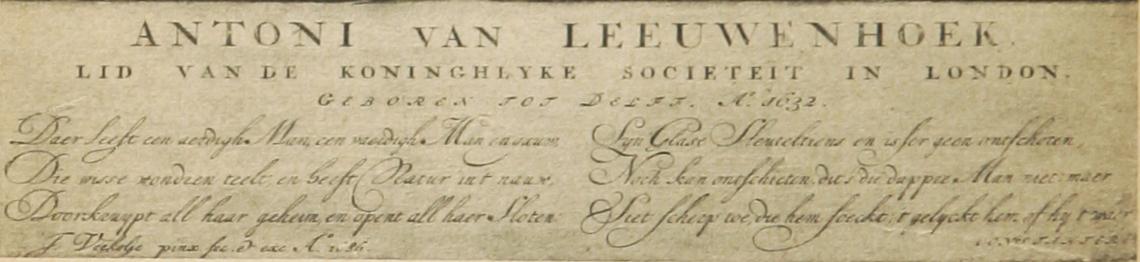 ANTONI VAN LEEUWENHOEK.
LID VAN DE KONINGHLYKE SOCIETEIT IN LONDON.
GEBOREN TOT DELFT. Aº. 1632.
Daer leeft een aerdigh Man, een Man en
Die wisse wond'ren teelt, en heeft Natur int nauw,
Doorkruypt all haar geheim, en opent all haer Sloten:
Syn Glase Sleuteltiens en isser geen ontschoten,
Noch kan ontschieten, dit's die dappre Man niet: maer
Siet scherp toe, die hem soeckt: t gelyckt hem, of hy t waer
J. Verkolje pinx. fec. et exc. Aº. 1686.
CONSTANTER.